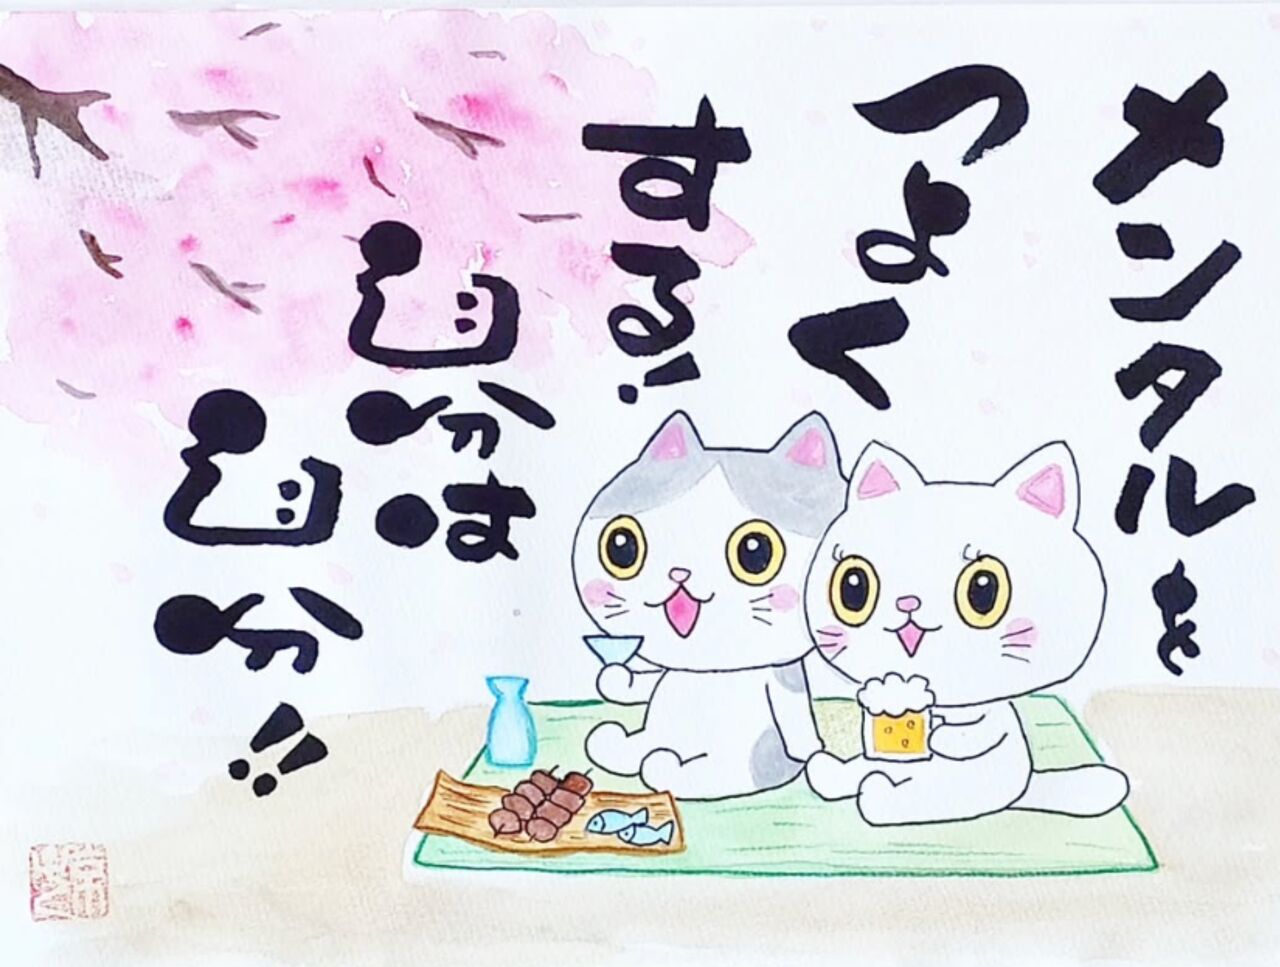 メンタルを
つよく
する!
じ分は
じ分!!